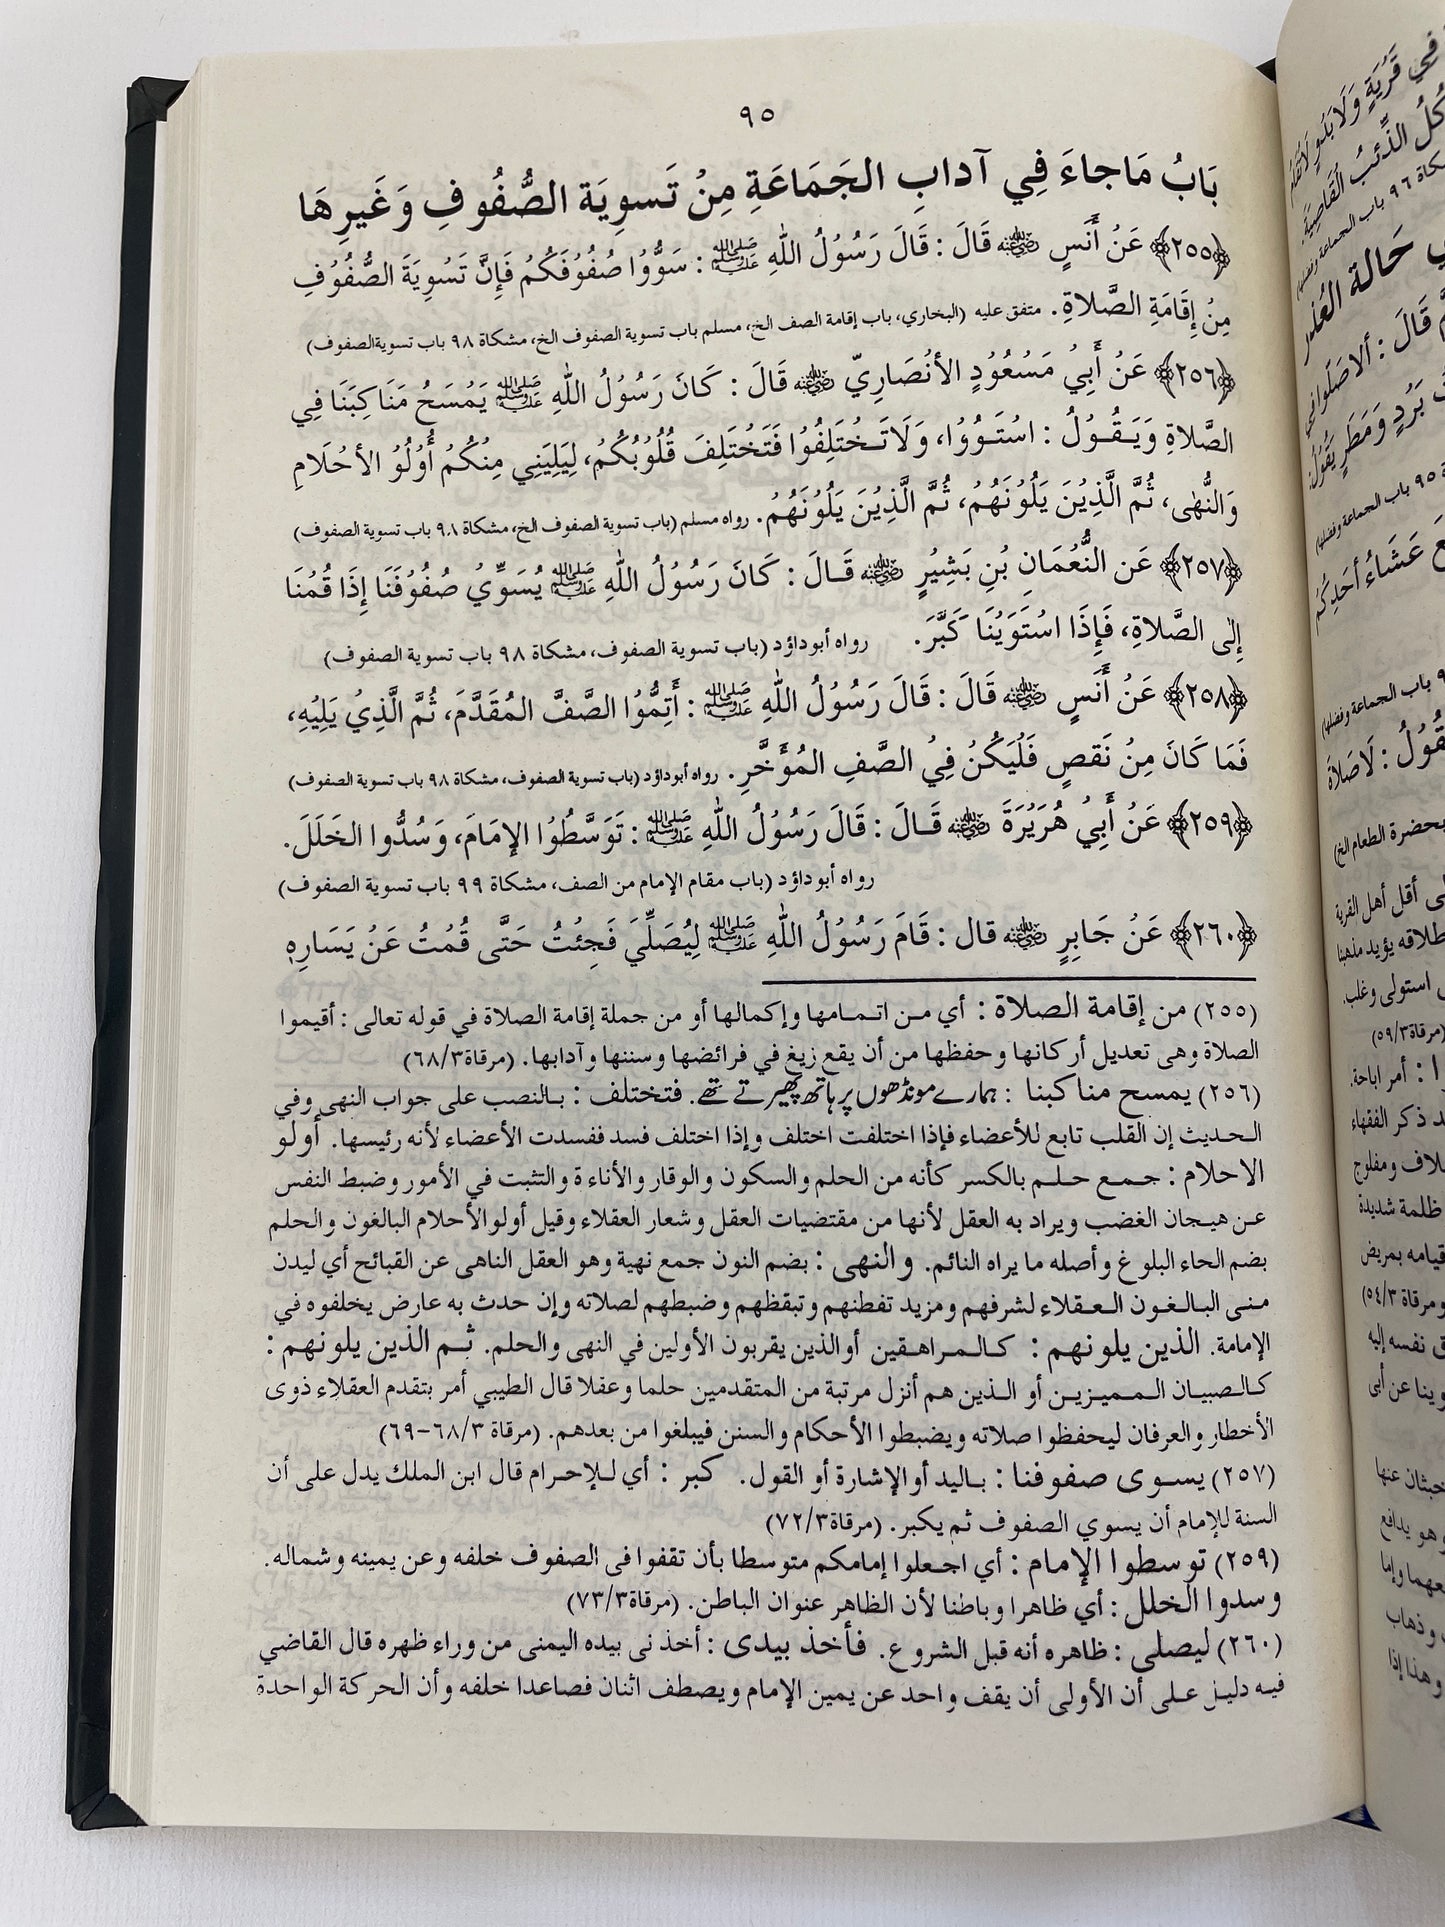 ٩٥
بَابُ مَاجاءَ فِي آدابِ الجَمَاعَةِ مِنْ تَسوِيَة الصُّفُوفِ وَغَيرِهَا
﴿٢٥٥﴾ عَنْ أَنَسٍ رضي الله عنه قَالَ : قَالَ رَسُوْلُ اللّٰهِ ﷺ : سَوُّوْا صُفُوْفَكُمْ فَإِنَّ تَسْوِيَةَ الصُّفُوْفِ
مِنْ إِقَامَةِ الصَّلاةِ. متفق عليه (البخاري، باب إقامة الصف الخ، مسلم باب تسوية الصفوف الخ، مشكاة ٩٨ باب تسويةالصفوف)
﴿٢٥٦﴾ عَنْ أَبِيْ مَسْعُوْدٍ الأنْصَارِيّ رضي الله عنه قَالَ : كَانَ رَسُوْلُ اللّٰهِ ﷺ يَمْسَحُ مَنَاكِبَنَا فِي
الصَّلاةِ وَيَـقُـوْلُ : اسْتَـوُوْا، وَلَاتَـخْتَلِفُوْا فَتَخْتَلِفَ قُلُوْبُكُمْ، لِيَلِيَنِي مِنْكُمْ أُوْلُوْ الأحْلَامِ
وَالنُّهٰى، ثُمَّ الَّذِيْنَ يَلُوْنَهُمْ، ثُمَّ الَّذِيْنَ يَلُوْنَهُمْ. رواه مسلم (باب تسوية الصفوف الخ، مشكاة ٩٨ باب تسوية الصفوف)
﴿٢٥٧﴾ عَن النُّعْمَانِ بْنِ بَشِيْرٍ رضي الله عنه قَـالَ : كَانَ رَسُوْلُ اللّٰهِ ﷺ يُسَوِّيْ صُفُوْفَنَا إِذَا قُمْنَا
إِلٰى الصَّلَاةِ، فَإِذَا اسْتَوَيْنَا كَبَّرَ. رواه أبوداؤد (باب تسوية الصفوف، مشكاة ٩٨ باب تسوية الصفوف)
﴿٢٥٨﴾ عَنْ أَنَسٍ رضي الله عنه قَالَ : قَالَ رَسُوْلُ اللّٰهِ ﷺ : أَتِمُّوْا الصَّفَّ المُقَدَّمَ، ثُمَّ الَّذِيْ يَلِيْهِ،
فَمَا كَانَ مِنْ نَقصٍ فَلْيَكُنْ فِيْ الصَّفِ المُؤَخَّرِ. رواه أبوداؤد (باب تسوية الصفوف، مشكاة ٩٨ باب تسوية الصفوف)
﴿٢٥٩﴾ عَنْ أَبِيْ هُرَيْرَةَ رضي الله عنه قَـالَ : قَالَ رَسُوْلُ اللّٰهِ ﷺ : تَوَسَّطُوْا الإمَامَ، وَسُدُّوا الخَلَلَ.
رواه أبوداؤد (باب مقام الإمام من الصف، مشكاة ٩٩ باب تسوية الصفوف)
﴿٢٦٠﴾ عَنْ جَابِرٍ رضي الله عنه قال : قَامَ رَسُوْلُ اللّٰهِ ﷺ لِيُصَلِّيَ فَجِئْتُ حَتَّى قُمْتُ عَنْ يَسَارِهٖ
(٢٥٥) من إقامة الصلاة : أي مـن اتـمـامها وإكمالها أو من جملة إقامة الصلاة في قوله تعالى : أقيموا
الصلاة وهى تعديل أركانها وحفظها من أن يقع زيغ في فرائضها وسننها وآدابها. (مرقاة٦٨/٣)
(٢٥٦) يمسح مناكبنا : ہمارے مونڈھوں پر ہاتھ پھیرتے تھے. فتختلف : بـالنصب على جواب النهى وفي
الـحديث إن القلب تابع للأعضاء فإذا اختلفت اختلف وإذا اختلف فسد ففسدت الأعضاء لأنه رئيسها. أولو
الاحلام : جـمـع حـلـم بالكسر كأنه من الحلم والسكون والوقار والأناءة والتثبت في الأمور وضبط النفس
عـن هيـجان الغضب ويراد به العقل لأنها من مقتضيات العقل وشعار العقلاء وقيل أولو الأحلام البالغون والحلم
بضم الحاء البلوغ وأصله ما يراه النائم. والنهى : بضم النون جمع نهية وهو العقل الناهى عن القبائح أي ليدن
مـنـى البـالـغـون الـعـقلاء لشرفهم ومزيد تفطنهم وتيقظهم وضبطهم لصلاته وإن حدث به عارض يخلفوه في
الإمامة. الذين يلونهم : كـالـمـراهـقين أوالذين يقربون الأولين في النهى والحلم. ثـم الذين يلونهم :
كـالـصبيان الـمـميـزيـن أو الـذين هم أنزل مرتبة من المتقدمين حلما وعقلا قال الطيبي أمر بتقدم العقلاء ذوى
الأخطار والعرفان ليحفظوا صلاته ويضبطوا الأحكام والسنن فيبلغوا من بعدهم. (مرقاة ٦٨/٣-٦٩)
(٢٥٧) يســوى صفوفنا : بـاليد أوالإشارة أو القول. كبر : أي لـلإحـرام قال ابن الملك يدل على أن
السنة للإمام أن يسوي الصفوف ثم يكبر. (مرقاة٧٢/٣)
(٢٥٩) توسطوا الإمام : أي اجـعلوا إمامكم متوسطا بأن تقفوا فى الصفوف خلفه وعن يمينه وشماله.
وسدوا الخلل : أي ظاهرا وباطنا لأن الظاهر عنوان الباطن. (مرقاة٧٣/٣)
(٢٦٠) ليصلى : ظاهره أنه قبل الشروع. فأخذ بيدى : أخذنى بيده اليمنى من وراء ظهره قال القاضي
فيـه دليـل عـلى أن الأولى أن يقف واحد عن يمين الإمام ويصطف اثنان فصاعدا خلفه وأن الحركة الواحدة
في قَرْيَةٍ وَلَا بَدْوٍ لَاتُقَامُ
الذِّئبُ القَاصِيَةَ.
٩٦ باب الجماعة وفضلها)
حَالة العُذر
قَالَ : ألا صَلّوا في
بَرْدٍ وَمَطَرٍ يَقُوْلُ:
٩٥ باب الجماعة وفضلها)
عَشَاءُ أحَدِكُمْ
باب الجماعة وفضلها)
لَا صَلَاةَ
بحضرة الطعام الخ)
أقل أهل القرية
يؤيد مذهبنا
استولى وغلب.
(مرقاة٥٩/٣)
: أمر اباحة.
ذكر الفقهاء
ومفلوج
ظلمة شديدة
قيامه بمريض
مرقاة ٥٤/٣)
نفسه إليه
عن أبى
عنها
وهو يدافع
وإما
وذهاب
وهذا إذا